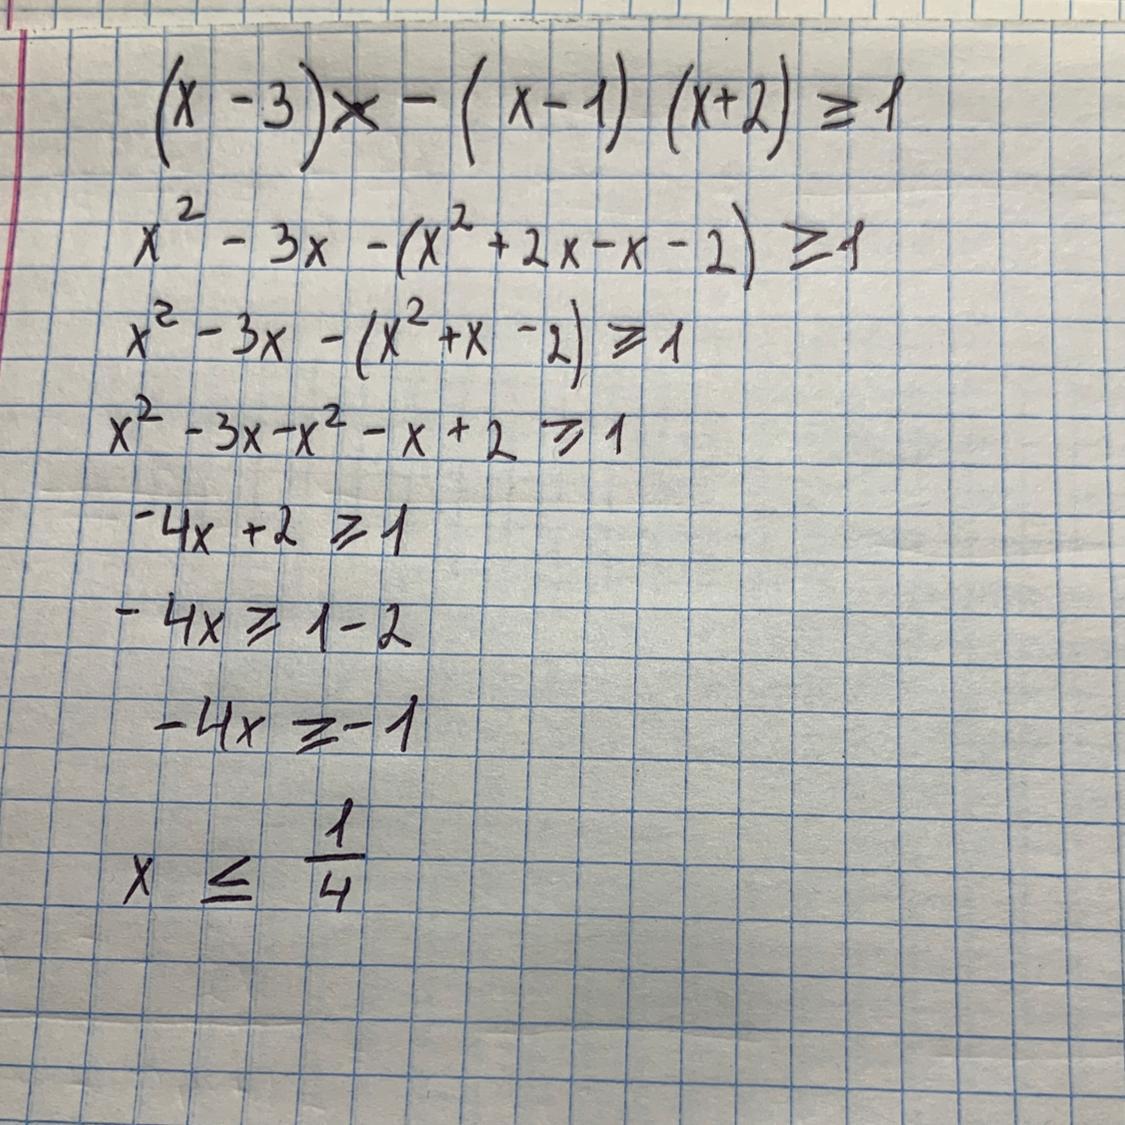 (x - 3)x - (x - 1) (x+2) ≥ 1
x² - 3x - (x² + 2x - x - 2) ≥ 1
x² - 3x - (x² + x - 2) ≥ 1
x² - 3x - x² - x + 2 ≥ 1
-4x + 2 ≥ 1
- 4x ≥ 1 - 2
- 4x ≥ - 1
x ≤ 1/4